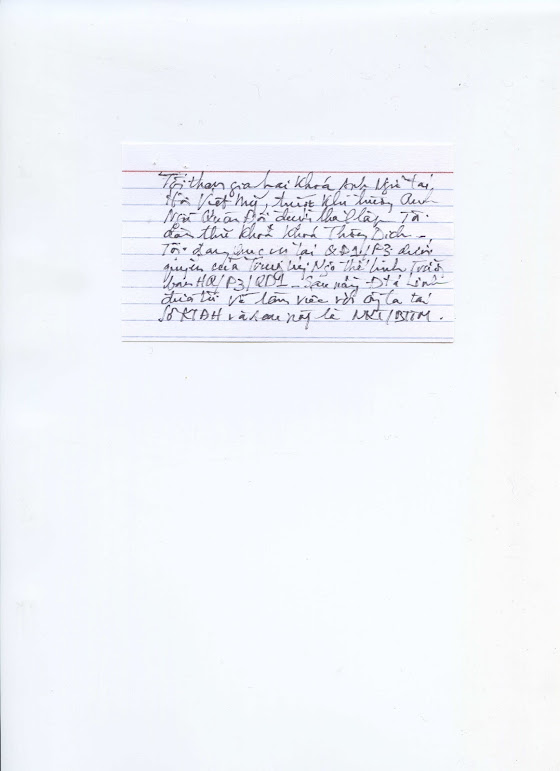 Tôi tham gia hai khoá Anh Ngữ tại
Hội Việt Mỹ, trước khi trường Anh
Ngữ Quân Đội được thành lập. Tôi
đậu thủ khoa khoá Thông Dịch.
Tôi đang phục vụ tại QĐ1/P3 dưới
quyền của Trung Uý Ngô Thế Linh, Trưởng
ban HQ/P3/QĐ1. Sau này Đ/tá Linh
đưa tôi về làm việc với ông ta tại
Sở KTĐH và sau này là NKT/BTTM.